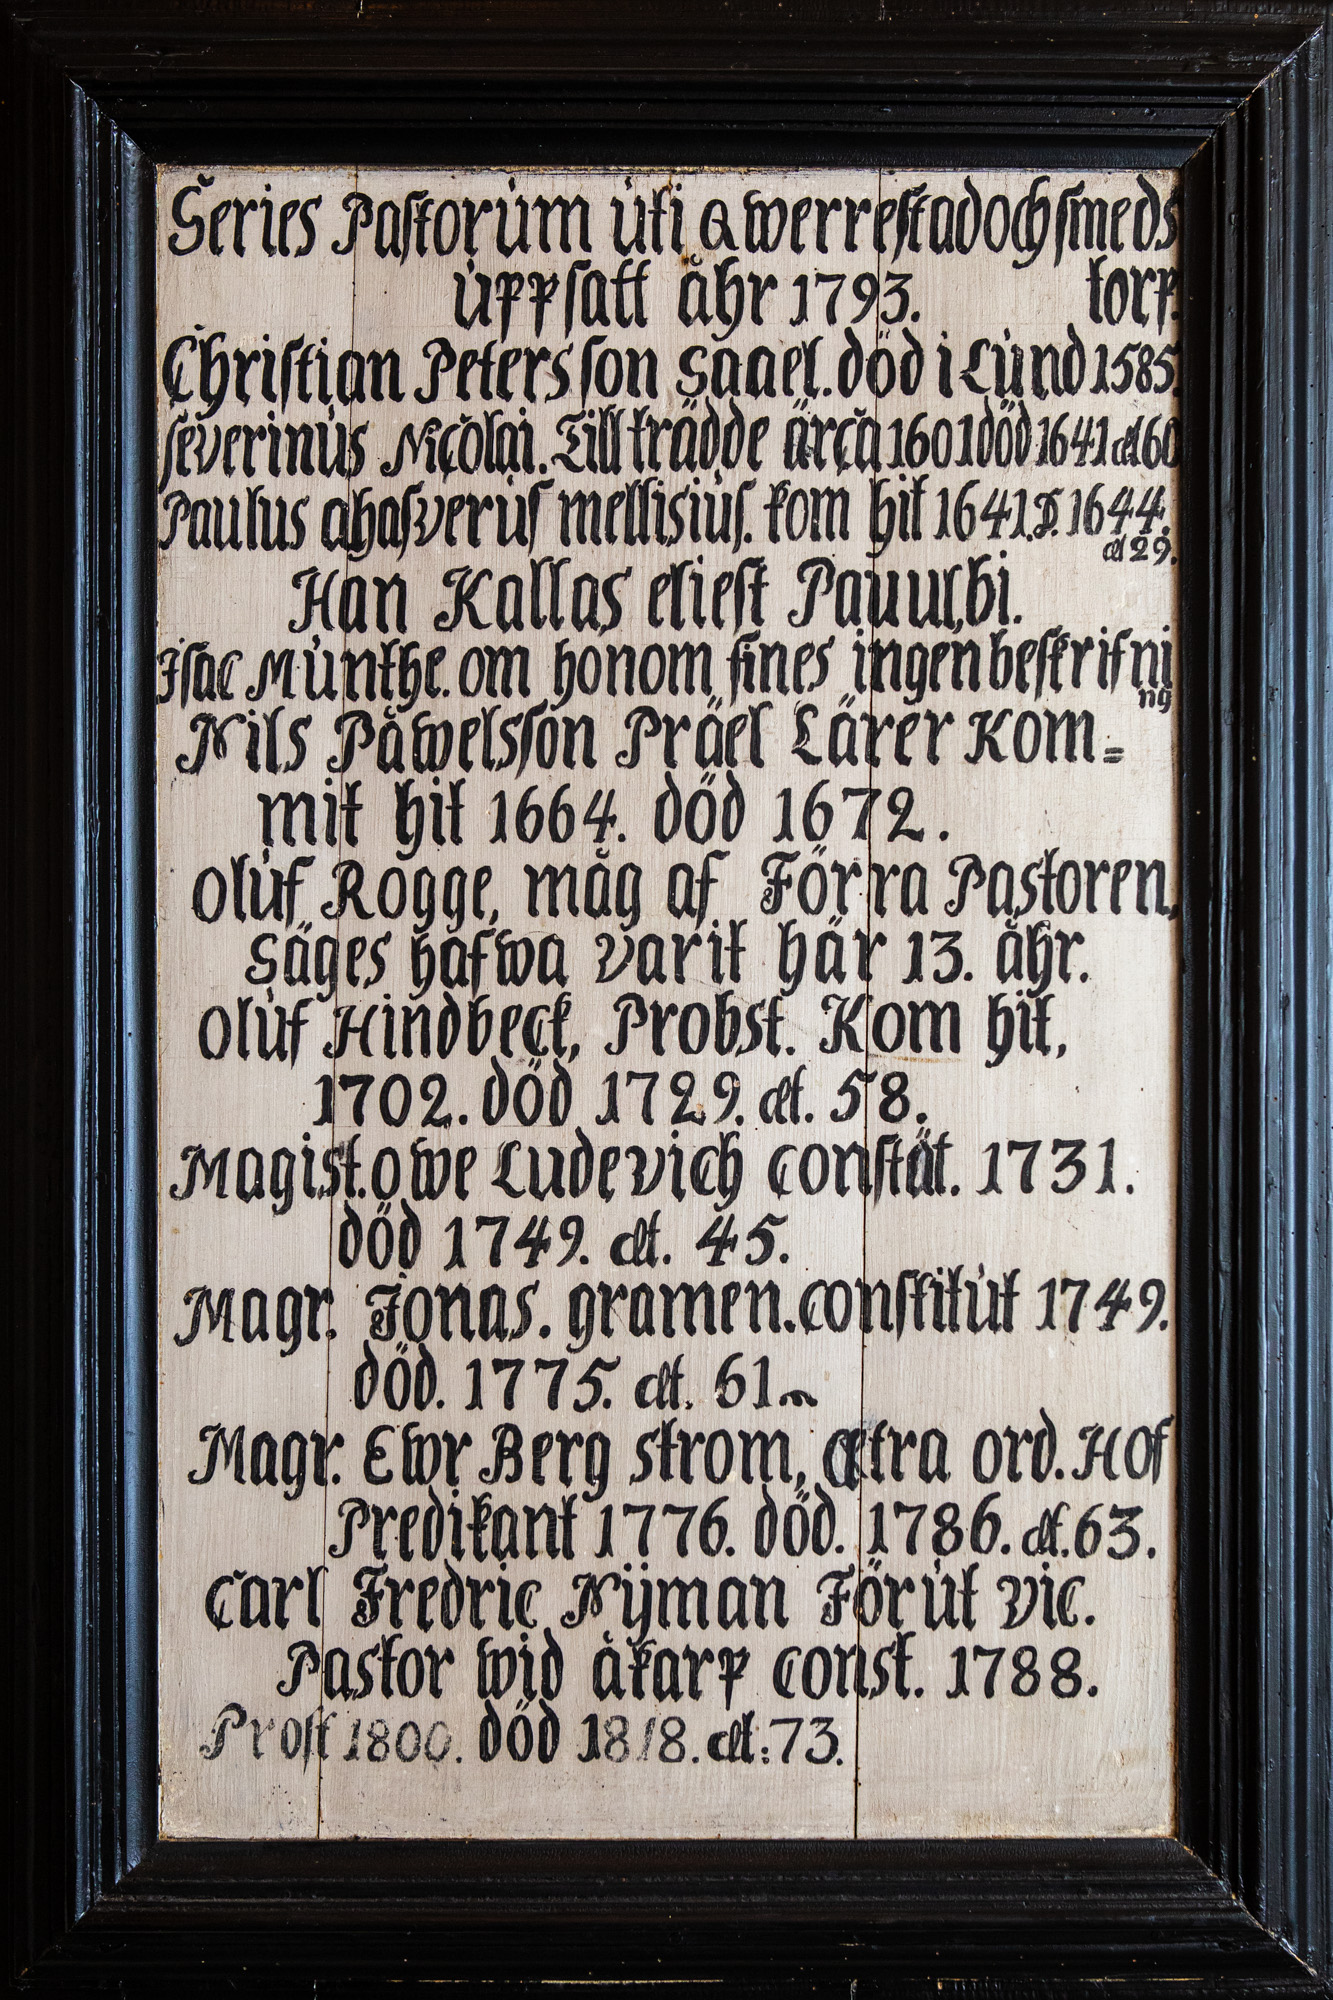 Series Pastorum uti Qwerrestad och smeds
uppsatt åhr 1793. torp.
Christian Petersson Saael. död i Lund 1585.
severinus Nicolai. Tillträdde ärca 1601 död 1641 æt 60
Paulus ahasverus mellisius. kom hit 1641. D. 1644.
æt 29.
Han Kallas eliest Pauulbi.
Isac Munthe. om honom fines ingen beskrifni
ng
Nils Påwelsson Präel Lärer Kom=
mit hit 1664. död 1672.
oluf Rogge, måg af Förra Pastoren,
Säges hafwa varit här 13. åhr.
oluf Hindbeck, Probst. Kom hit,
1702. död 1729. æt. 58.
Magist. owe Ludevich constät. 1731.
död 1749. æt. 45.
Magr. Jonas. gramen. constitut 1749.
död. 1775. æt. 61
Magr. Ewr Berg strom, ætra ord. Hof
Predikant 1776. död. 1786. æt. 63.
Carl Fredric Nijman Förut vic.
Pastor wid åkarp const. 1788.
Prost 1800. död 1818. æt: 73.